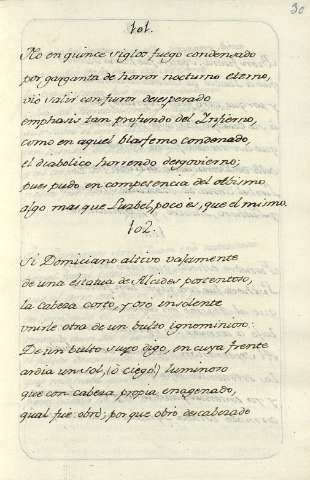 30
101.
No en quince siglos fuego condensado
por garganta de horror nocturno eterno,
vió salir con furor desesperado
emphasis tan profundo del Infierno,
como en aquel blasfemo condenado,
el diabolico horrendo desgovierno;
pues pudo en competencia del Abismo
algo mas que Luzbel, poco és, que el mismo.
102.
Si Domiciano altivo vajamente
de una estatua de Alcides portentoso,
la cabeza cortó, y osó insolente
unirle otra de un bulto ignominioso:
De un bulto suyo digo, en cuya frente
ardia un sol, (ó ciego!) luminoso
que con cabeza propia enagenado,
qual fué obró; porque obró descabezado